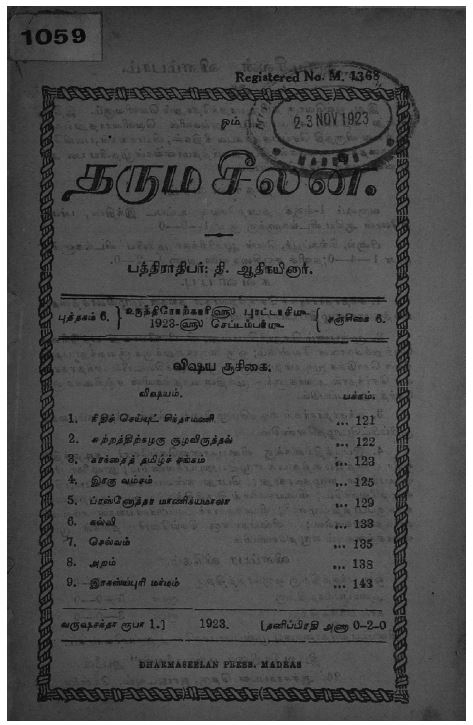 1059
Registered No. M. 1368
ஓம்
23 NOV 1923
தரும சீலன்.
பத்திராதிபர்: தி. ஆதிநாயினார்.
புத்தகம் 6. } உருத்திரோற்காரி௵ புரட்டாசி௴ { சஞ்சிகை 6.
1923-௵ செப்டம்பர்௴
விஷய சூசிகை.
விஷயம். பக்கம்.
1. நீதிச் செய்யுட் சிந்தாமணி ... 121
2. சுற்றத்திற்கழகு சூழவிருத்தல் ... 122
3. கரந்தைத் தமிழ்ச் சங்கம் ... 123
4. இரகு வம்சம் ... 125
5. ப்ரஸ்னோத்தர மாணிக்யமாலா ... 129
6. கல்வி ... 133
7. செல்வம் ... 135
8. அறம் ... 138
9. இரகஸ்யபுரி மர்மம் ... 143
வருஷசந்தா ரூபா 1.] 1923. [தனிப்பிரதி அணா 0-2-0
DHARMASEELAN PRESS, MADRAS